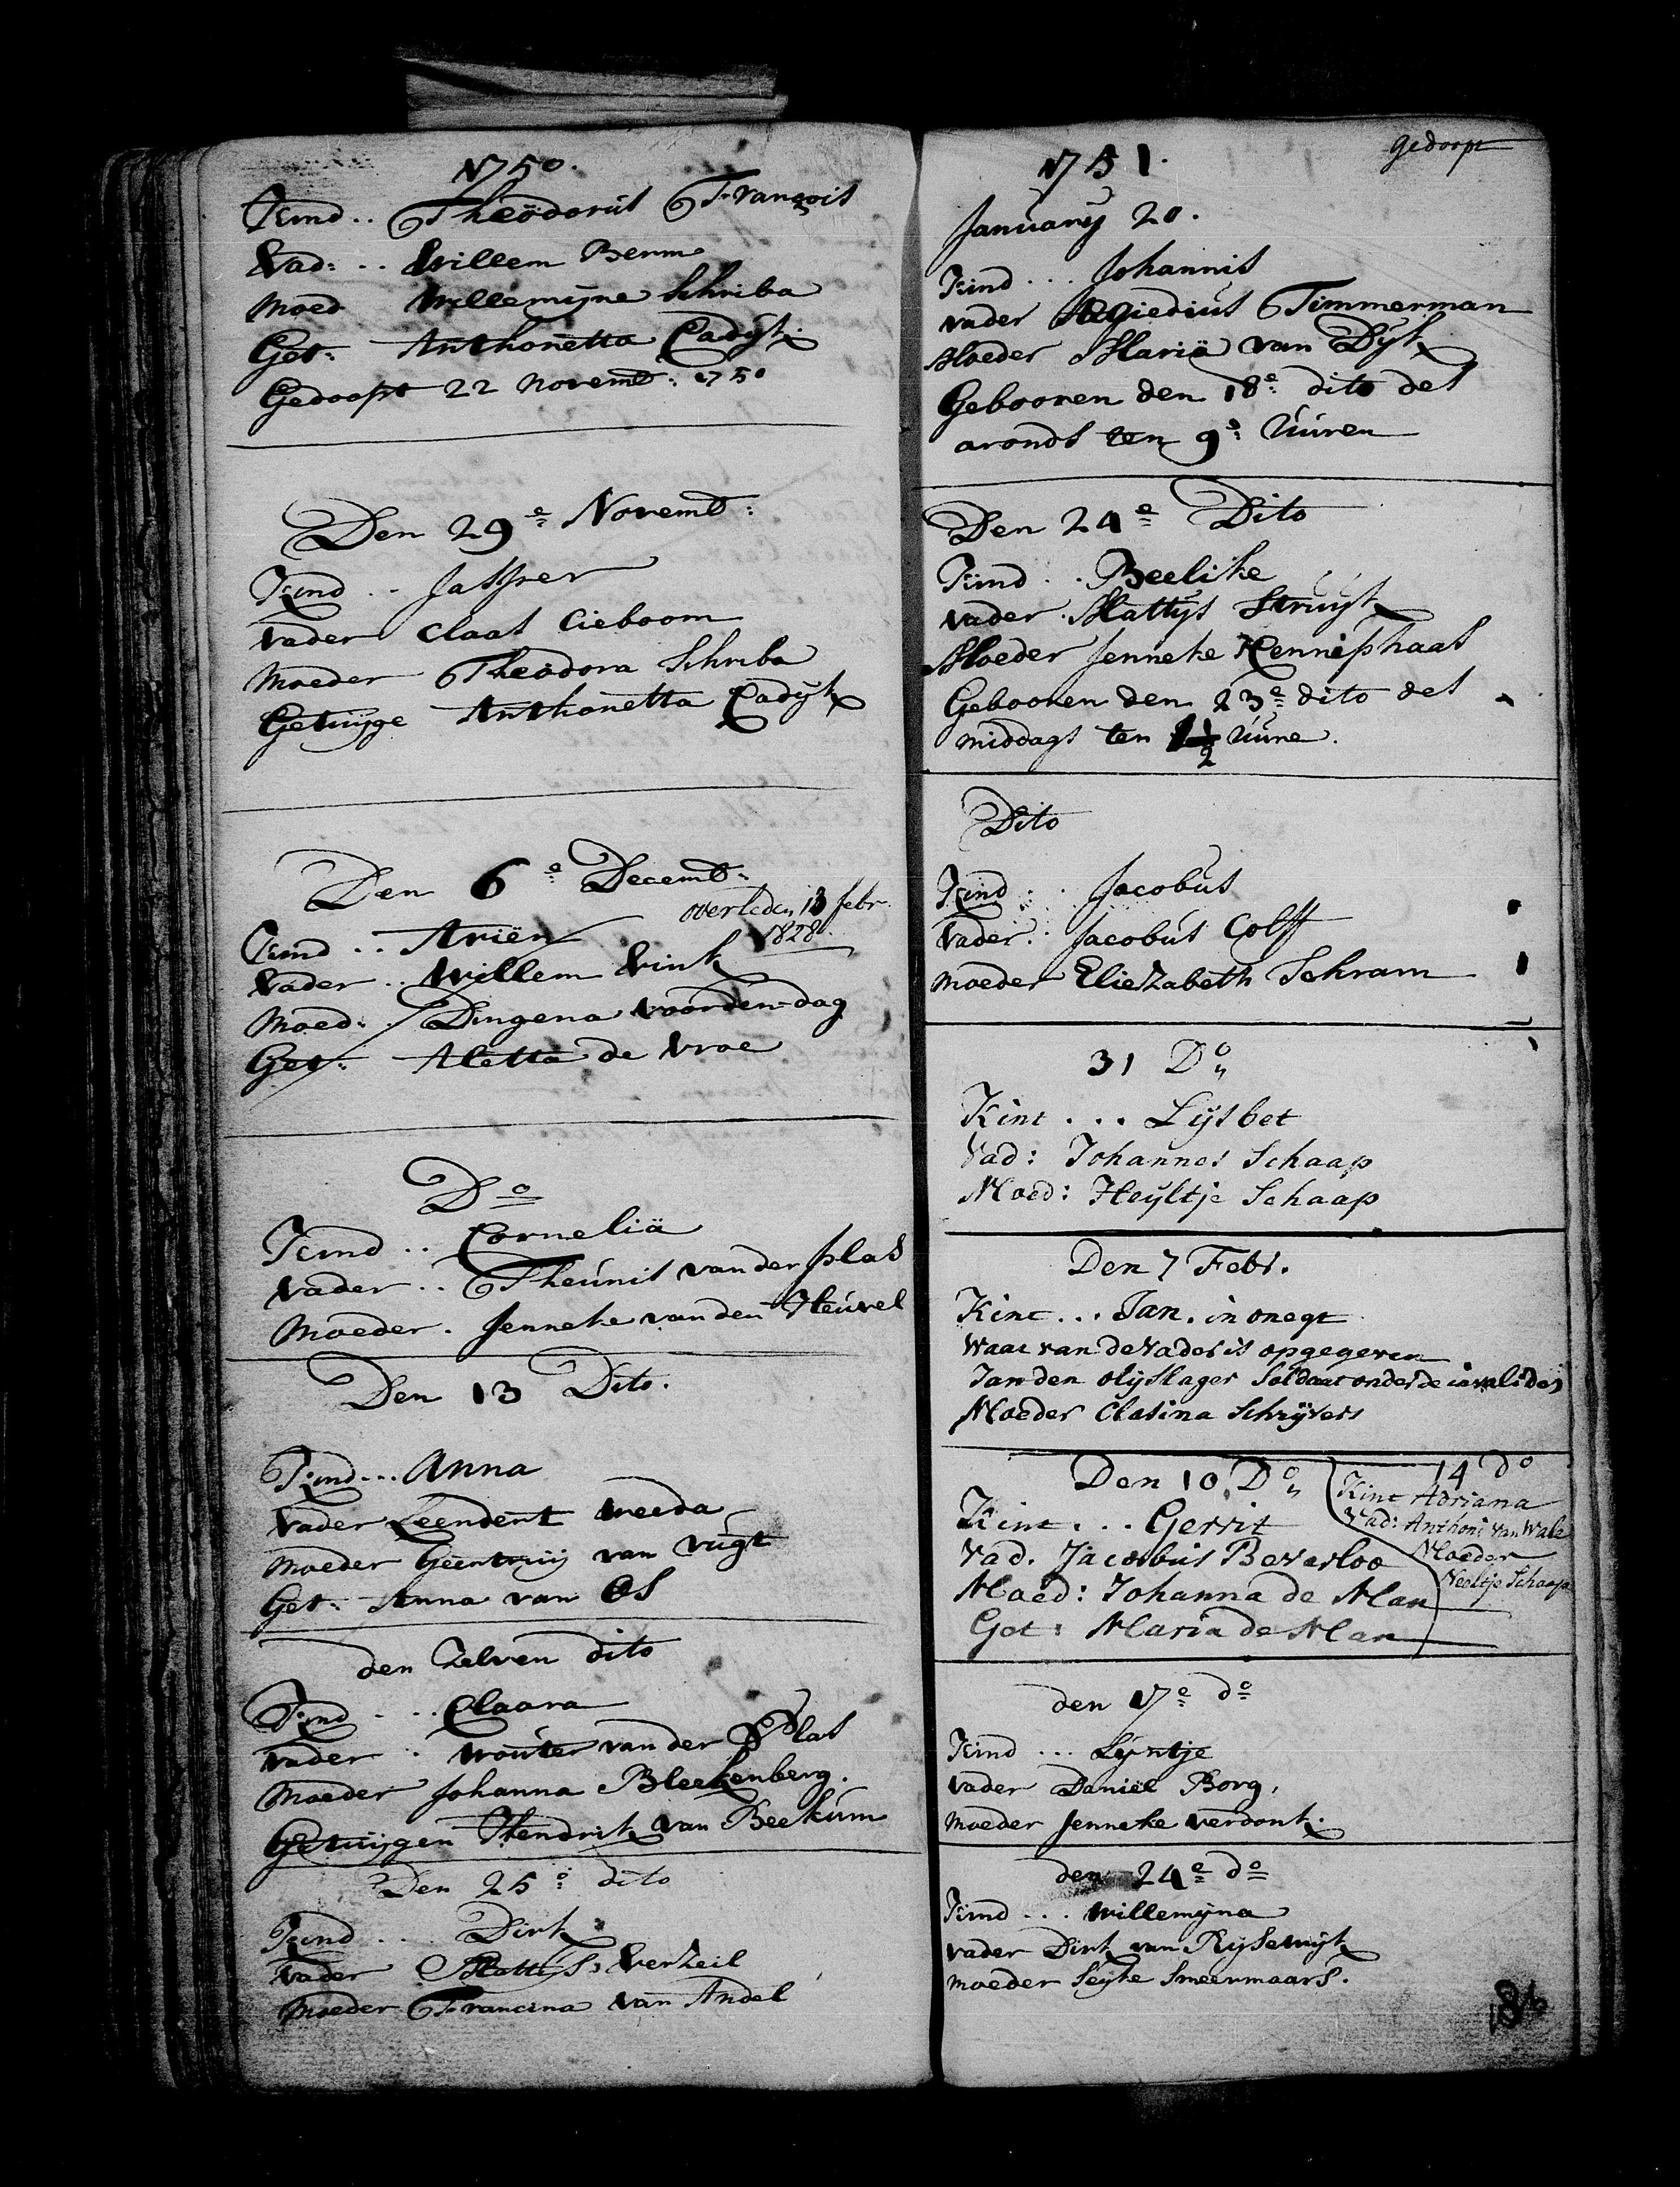 1750.
Kind .. Theodorus François
Vad: .. Willem Berm
Moed Willemyne Schriba
Get: Anthonetta Cadyk
Gedoopt 22 Novemb: 1750
Den 29e Novemb:
Kind .. Jasper
Vader Claas Cieboom
Moeder Theodora Schriba
Getuyge Anthonetta Cadyk
Den 6e Decemb:
overleden 13 febr.
1828.
Kind .. Ariën
Vader .. Willem Vink
Moed: Dingena voorden-dag
Get: Aletta de Vroe
Do
Kind .. Corneliä
Vader .. Theunis van der plas
Moeder . Jenneke van den Heuvel
Den 13 Dito.
Kind ... Anna
Vader Leendert weeda
Moeder Geertruy van Vugt
Get: Anna van Os
den Zelven dito
Kind ... Claara
Vader . Wouter van der Plas
Moeder Johanna Bleekenberg.
Getuygen Hendrik van Beekum
Den 25e dito
Kind ... Dirk
Vader Mattys Verzeil
Moeder Francina van Andel
1751.
gedoopt
January 20.
Kind ... Johannis
Vader Aegiedius Timmerman
Moeder Mariä van Dyk
Gebooren den 18e: dito des
avonds ten 9e: Uuren
Den 24e Dito
Kind .. Beelike
Vader Mattys Struyk
Moeder Jenneke Kenniphaas
Gebooren den 23e dito des
middags ten 1/2 Uure.
Dito
Kind . . Jacobus
Vader . Jacobus Colff
Moeder Eliezabeth Schram
31 Do
Kint ... Lysbet
Vad: Johannes Schaap
Moed: Heyltje Schaap
Den 7 Febr.
Kint ... Jan. in onegt
Waar van de Vader is opgegeven
Jan den olyslager Soldaat onder de invalides
Moeder Clasina Schryvers
Den 10 Do
Kint ... Gerrit
Vad. Jacobus Beverloo
Moed: Johanna de Man
Get: Maria de Man
14 do
Kint Adriana
Vad: Anthoni van Wale
Moeder
Neeltje Schaap
den 17e do
Kind ... Lyntje
Vader Daniël Borg,
Moeder Jenneke verdonk.
den 24e do
Kind ... Willemyna
Vader Dirk van Ryswyk
Moeder Seyke Smeermaars.